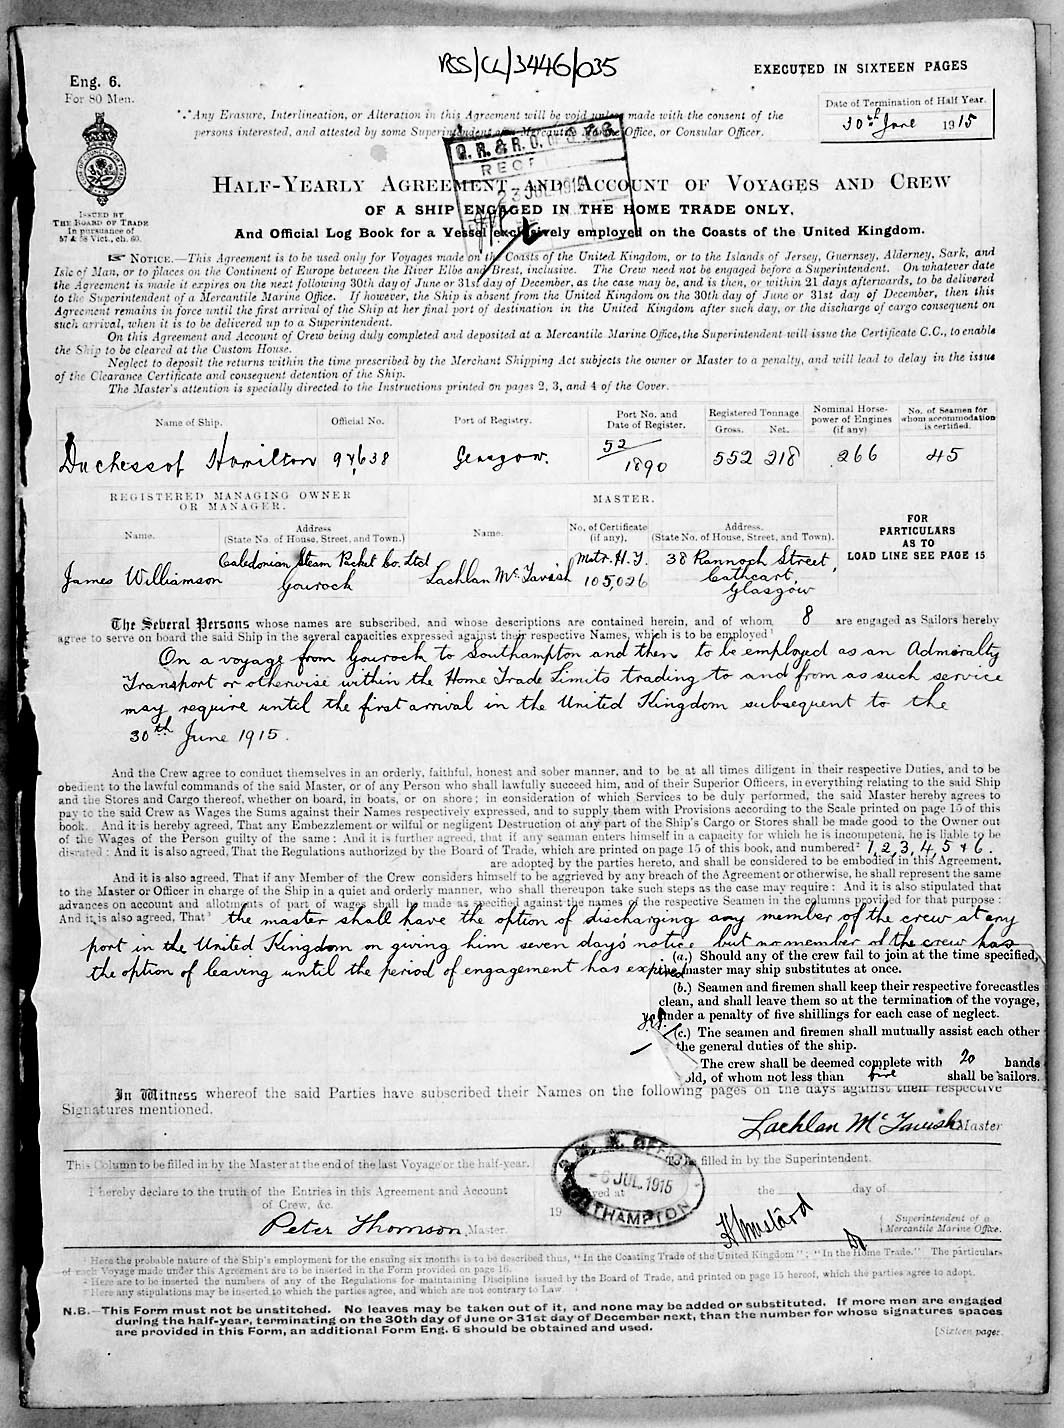 RSS/CL/3446/035
EXECUTED IN SIXTEEN PAGES
Eng. 6.
For 80 Men.
Date of Termination of Half Year.
30th June 1915
*⁎* Any Erasure, Interlineation, or Alteration in this Agreement will be void unless made with the consent of the
persons interested, and attested by some Superintendent of a Mercantile Marine Office, or Consular Officer.
23 JUL 1915
HALF-YEARLY AGREEMENT AND ACCOUNT OF VOYAGES AND CREW
OF A SHIP ENGAGED IN THE HOME TRADE ONLY,
And Official Log Book for a Vessel exclusively employed on the Coasts of the United Kingdom.
ISSUED BY
THE BOARD OF TRADE
In pursuance of
57 & 58 Vict., ch. 60.
☞ NOTICE.—This Agreement is to be used only for Voyages made on the Coasts of the United Kingdom, or to the Islands of Jersey, Guernsey, Alderney, Sark, and
Isle of Man, or to places on the Continent of Europe between the River Elbe and Brest, inclusive. The Crew need not be engaged before a Superintendent. On whatever date
the Agreement is made it expires on the next following 30th day of June or 31st day of December, as the case may be, and is then, or within 21 days afterwards, to be delivered
to the Superintendent of a Mercantile Marine Office. If however, the Ship is absent from the United Kingdom on the 30th day of June or 31st day of December, then this
Agreement remains in force until the first arrival of the Ship at her final port of destination in the United Kingdom after such day, or the discharge of cargo consequent on
such arrival, when it is to be delivered up to a Superintendent.
On this Agreement and Account of Crew being duly completed and deposited at a Mercantile Marine Office, the Superintendent will issue the Certificate C.C., to enable
the Ship to be cleared at the Custom House.
Neglect to deposit the returns within the time prescribed by the Merchant Shipping Act subjects the owner or Master to a penalty, and will lead to delay in the issue
of the Clearance Certificate and consequent detention of the Ship.
The Master's attention is specially directed to the Instructions printed on pages 2, 3, and 4 of the Cover.
Name of Ship. Official No. Port of Registry. Port No. and Date of Register. Registered Tonnage Gross. Net. Nominal Horse-power of Engines (if any) No. of Seamen for whom accommodation is certified.
Duchess of Hamilton 97638 Glasgow. 52/1890 552 218 266 45
REGISTERED MANAGING OWNER
OR MANAGER.
MASTER.
Name. Address (State No. of House, Street, and Town.) Name. No. of Certificate (if any). Address. (State No. of House, Street, and Town).
FOR
PARTICULARS
AS TO
LOAD LINE SEE PAGE 15
James Williamson Caledonian Steam Packet Co. Ltd Gourock Lachlan McTavish Mstr. H.T. 105,026 38 Rannoch Street, Cathcart, Glasgow
The Several Persons whose names are subscribed, and whose descriptions are contained herein, and of whom 8 are engaged as Sailors hereby
agree to serve on board the said Ship in the several capacities expressed against their respective Names, which is to be employed¹
On a voyage from Gourock to Southampton and then to be employed as an Admiralty
Transport or otherwise within the Home Trade Limits trading to and from as such service
may require until the first arrival in the United Kingdom subsequent to the
30th June 1915.
And the Crew agree to conduct themselves in an orderly, faithful, honest and sober manner, and to be at all times diligent in their respective Duties, and to be
obedient to the lawful commands of the said Master, or of any Person who shall lawfully succeed him, and of their Superior Officers, in everything relating to the said Ship
and the Stores and Cargo thereof, whether on board, in boats, or on shore; in consideration of which Services to be duly performed, the said Master hereby agrees to
pay to the said Crew as Wages the Sums against their Names respectively expressed, and to supply them with Provisions according to the Scale printed on page 15 of this
book. And it is hereby agreed, That any Embezzlement or wilful or negligent Destruction of any part of the Ship's Cargo or Stores shall be made good to the Owner out
of the Wages of the Person guilty of the same: And it is further agreed, that if any seaman enters himself in a capacity for which he is incompetent, he is liable to be
disrated: And it is also agreed, That the Regulations authorized by the Board of Trade, which are printed on page 15 of this book, and numbered² 1, 2, 3, 4, 5 & 6.
are adopted by the parties hereto, and shall be considered to be embodied in this Agreement.
And it is also agreed, That if any Member of the Crew considers himself to be aggrieved by any breach of the Agreement or otherwise, he shall represent the same
to the Master or Officer in charge of the Ship in a quiet and orderly manner, who shall thereupon take such steps as the case may require: And it is also stipulated that
advances on account and allotments of part of wages shall be made as specified against the names of the respective Seamen in the columns provided for that purpose:
And it is also agreed, That³ the master shall have the option of discharging any member of the crew at any
port in the United Kingdom on giving him seven days' notice but no member of the crew has
the option of leaving until the period of engagement has expired
(a.) Should any of the crew fail to join at the time specified,
the master may ship substitutes at once.
(b.) Seamen and firemen shall keep their respective forecastles
clean, and shall leave them so at the termination of the voyage,
under a penalty of five shillings for each case of neglect.
(c.) The seamen and firemen shall mutually assist each other
the general duties of the ship.
The crew shall be deemed complete with 20 hands
old, of whom not less than five shall be sailors.
In Witness whereof the said Parties have subscribed their Names on the following pages on the days against their respective
Signatures mentioned.
Lachlan McTavish Master
This Column to be filled in by the Master at the end of the last Voyage or the half-year.
To be filled in by the Superintendent.
I hereby declare to the truth of the Entries in this Agreement and Account
of Crew, &c.
Peter Thomson Master.
-6 JUL. 1915
SOUTHAMPTON
the day of
19
Superintendent of a
Mercantile Marine Office.
¹ Here the probable nature of the Ship's employment for the ensuing six months is to be described thus, "In the Coasting Trade of the United Kingdom"; "In the Home Trade." The particulars
of each Voyage made under this Agreement are to be inserted in the Form provided on page 16.
² Here are to be inserted the numbers of any of the Regulations for maintaining Discipline issued by the Board of Trade, and printed on page 15 hereof, which the parties agree to adopt.
³ Here any stipulations may be inserted to which the parties agree, and which are not contrary to Law
N.B.—This Form must not be unstitched. No leaves may be taken out of it, and none may be added or substituted. If more men are engaged
during the half-year, terminating on the 30th day of June or 31st day of December next, than the number for whose signatures spaces
are provided in this Form, an additional Form Eng. 6 should be obtained and used.
[Sixteen pages.